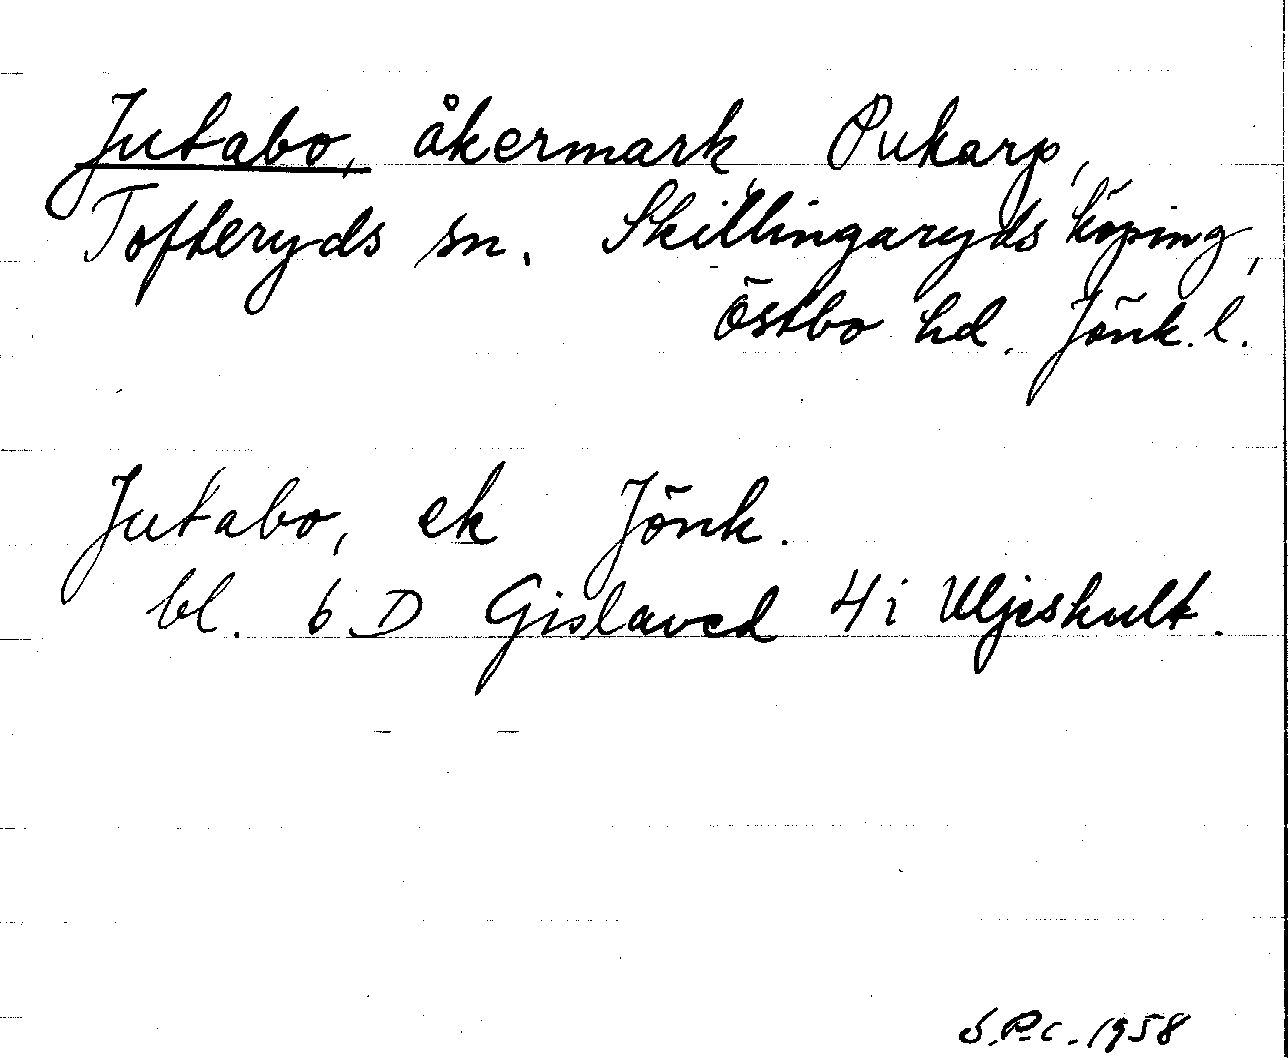 Jutabo, åkermark, Pukarp,
Tofteryds sn. Skillingaryds köping,
Östbo hd. Jönk. l.
Jutabo, ek Jönk.
bl. 6 D Gislaved 4 i Uljeshult.
S.P.C. 1958